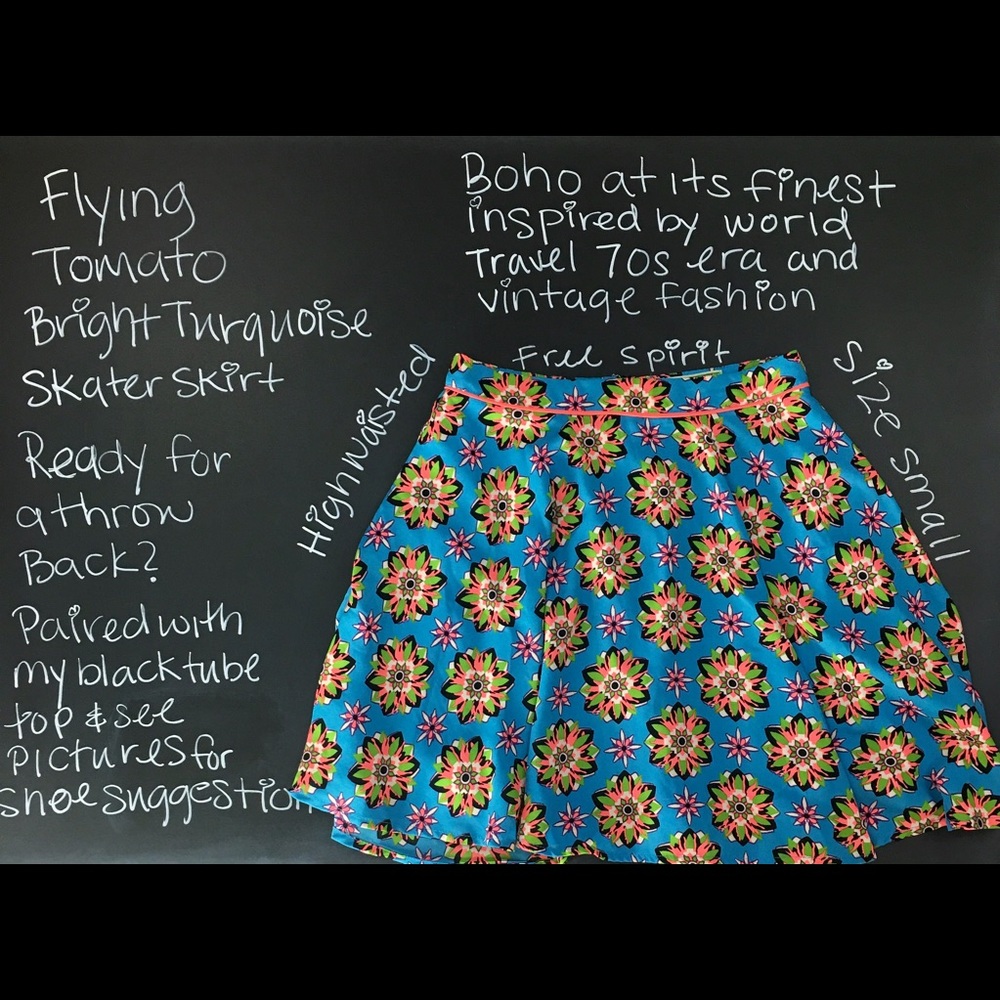 Flying
Tomato
Bright Turquoise
Skater Skirt
Ready for
a throw
Back?
Paired with
my black tube
top & see
pictures for
shoe suggestion
Boho at its finest
inspired by world
Travel 70s era and
vintage fashion
Free spirit
High waisted
Size small